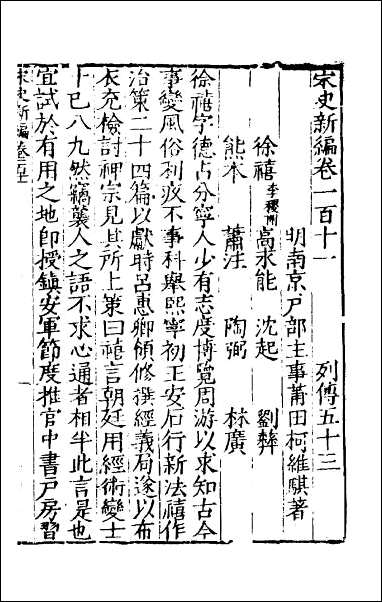 宋史新編卷一百十一　列傳五十三
明南京戶部主事莆田柯維騏著
徐禧李稷附　高永能　沈起　劉彝
熊本　蕭注　陶弼　林廣
徐禧字德占分寧人少有志度博覽周游以求知古今
事變風俗利疚不事科舉熙寧初王安石行新法禧作
治策二十四篇以獻時呂惠卿領修撰經義局遂以布
衣充檢討神宗見其所上策曰禧言朝廷用經術變士
十巳八九然竊襲人之語不求心通者相半此言是也
宜試於有用之地即授鎮安軍節度推官中書戸房習
宋史新編卷